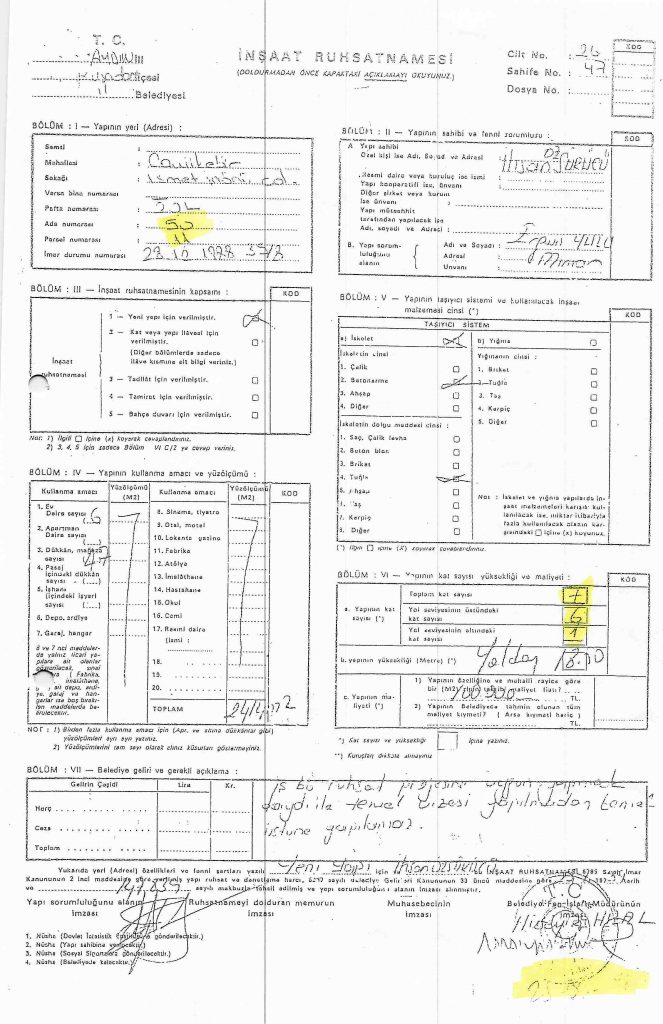 T. C.
AYDIN İli
Kuşadası İlçesi
Belediyesi
İNŞAAT RUHSATNAMESİ
(DOLDURMADAN ÖNCE KAPAKTAKİ AÇIKLAMAYI OKUYUNUZ.)
Cilt No. : 26
Sahife No. : 47
Dosya No. :
KOD
BÖLÜM : I — Yapının yeri (Adresi) :
Semti :
Mahallesi : Camikebir
Sokağı : İsmet inönü cad.
Varsa bina numarası
Pafta numarası :
Ada numarası : 50
Parsel numarası : 11
İmar durumu numarası : 23.10.1978
BÖLÜM : II — Yapının sahibi ve fenni sorumlusu :
KOD
A. Yapı sahibi
Özel kişi ise Adı, Soyadı ve Adresi : İhsan Sürücü
Resmi daire veya kuruluş ise ismi
Yapı kooperatifi ise, ünvanı :
Diğer şirket veya kurum
ise ünvanı :
Yapı müteahhit
tarafından yapılacak ise
Adı, soyadı ve Adresi :
B. Yapı sorum-
luluğunu
alanın
Adı ve Soyadı :
Adresi
Ünvanı : Mimar
BÖLÜM : III — İnşaat ruhsatnamesinin kapsamı :
KOD
İnşaat
ruhsatnamesi
1 — Yeni yapı için verilmiştir.
2 — Kat veya yapı ilâvesi için
verilmiştir.
(Diğer bölümlerde sadece
ilâve kısmına ait bilgi veriniz.)
3 — Tadilât için verilmiştir.
4 — Tamirat için verilmiştir.
5 — Bahçe duvarı için verilmiştir.
Not: 1) İlgili □ içine (x) koyarak cevaplandırınız.
2) 3, 4, 5 için sadece Bölüm VI C/2 ye cevap veriniz.
BÖLÜM : V — Yapının taşıyıcı sistemi ve kullanılacak inşaat
malzemesi cinsi (*)
KOD
TAŞIYICI SİSTEM
a) İskelet
b) Yığma
İskeletin cinsi
Yığmanın cinsi :
1. Çelik
1. Briket
2. Betonarme
2. Tuğla
3. Ahşap
3. Taş
4. Diğer
4. Kerpiç
5. Diğer
İskeletin dolgu maddesi cinsi :
1. Saç, Çelik levha
2. Beton blok
3. Briket
4. Tuğla
5. Ahşap
6. Taş
7. Kerpiç
8. Diğer
NOT : İskelet ve yığma yapılarda in-
şaat malzemeleri karışık kul-
lanılacak ise, miktar itibariyle
fazla kullanılacak olanın kar-
şısındaki □ içine (x) koyunuz.
(*) İlgili □ içine (X) koyarak cevaplandırınız.
BÖLÜM : IV — Yapının kullanma amacı ve yüzölçümü :
Kullanma amacı
Yüzölçümü (M2)
Kullanma amacı
Yüzölçümü (M2)
KOD
1. Ev
Daire sayısı 6
2. Apartman
Daire sayısı
(.....)
3. Dükkân, mağaza
sayısı
4. Pasaj
içindeki dükkân
sayısı (....)
5. İşhanı
(içindeki işyeri
sayısı (....)
6. Depo, ardiye
7. Garaj, hangar
8. Sinema, tiyatro
9. Otel, motel
10. Lokanta gazino
11. Fabrika
12. Atölye
13. İmalâthane
14. Hastahane
15. Okul
16. Cami
17. Resmi daire
(ismi :
18.
19.
20.
TOPLAM
NOT : 1) Birden fazla kullanma amacı için (Apr. ve altına dükkânlar gibi)
yüzölçümleri ayrı ayrı yazınız.
2) Yüzölçümlerini tam sayı olarak alınız küsurları göstermeyiniz.
BÖLÜM : VI — Yapının kat sayısı yüksekliği ve maliyeti :
KOD
a. Yapının kat
sayısı (*)
Toplam kat sayısı 7
Yol seviyesinin üstündeki
kat sayısı 6
Yol seviyesinin altındaki
kat sayısı 1
b. yapının yüksekliği (Metre) (*) Yoldan 18.00
c. Yapının ma-
liyeti (*)
1) Yapının özelliğine ve mahalli rayice göre
bir (M2) sinin takribi maliyet fiatı?
TL.
2) Yapının Belediyece tahmin olunan tüm
maliyet kıymeti? ( Arsa kıymeti hariç )
TL.
*) Kat sayısı ve yüksekliği □ içine yazınız.
**) Kuruşları dikkate almayınız
BÖLÜM : VII — Belediye geliri ve gerekli açıklama :
Gelirin Çeşidi
Lira
Kr.
Harç
Ceza
Toplam
iş bu ruhsat projesine uygun yapılmak
kaydı ile temel vizesi yapılmadan temel
üstüne yapılamaz.
Yukarıda yeri (Adresi) özellikleri ve fenni şartları yazılı Yeni Yapı için İhsan Sürücü bu İNŞAAT RUHSATNAMESİ 6785 Sayılı İmar
Kanununun 2 inci maddesine göre verilmiş yapı ruhsat ve denetleme harcı, 5237 sayılı Belediye Gelirleri Kanununun 33 üncü maddesine göre tarih
ve sayılı makbuzla tahsil edilmiş ve yapı sorumluluğunu alanın imzası alınmıştır.
Yapı sorumluluğunu alanın
imzası
Ruhsatnameyi dolduran memurun
imzası
Muhasebecinin
imzası
Belediye Fen İşleri Müdürünün
imzası
T.C.
1. Nüsha (Devlet İstatistik Enstitüsüne gönderilecektir.)
2. Nüsha (Yapı sahibine verilecektir.)
3. Nüsha (Sosyal Sigortalara gönderilecektir.)
4. Nüsha (Belediyede kalacaktır.)